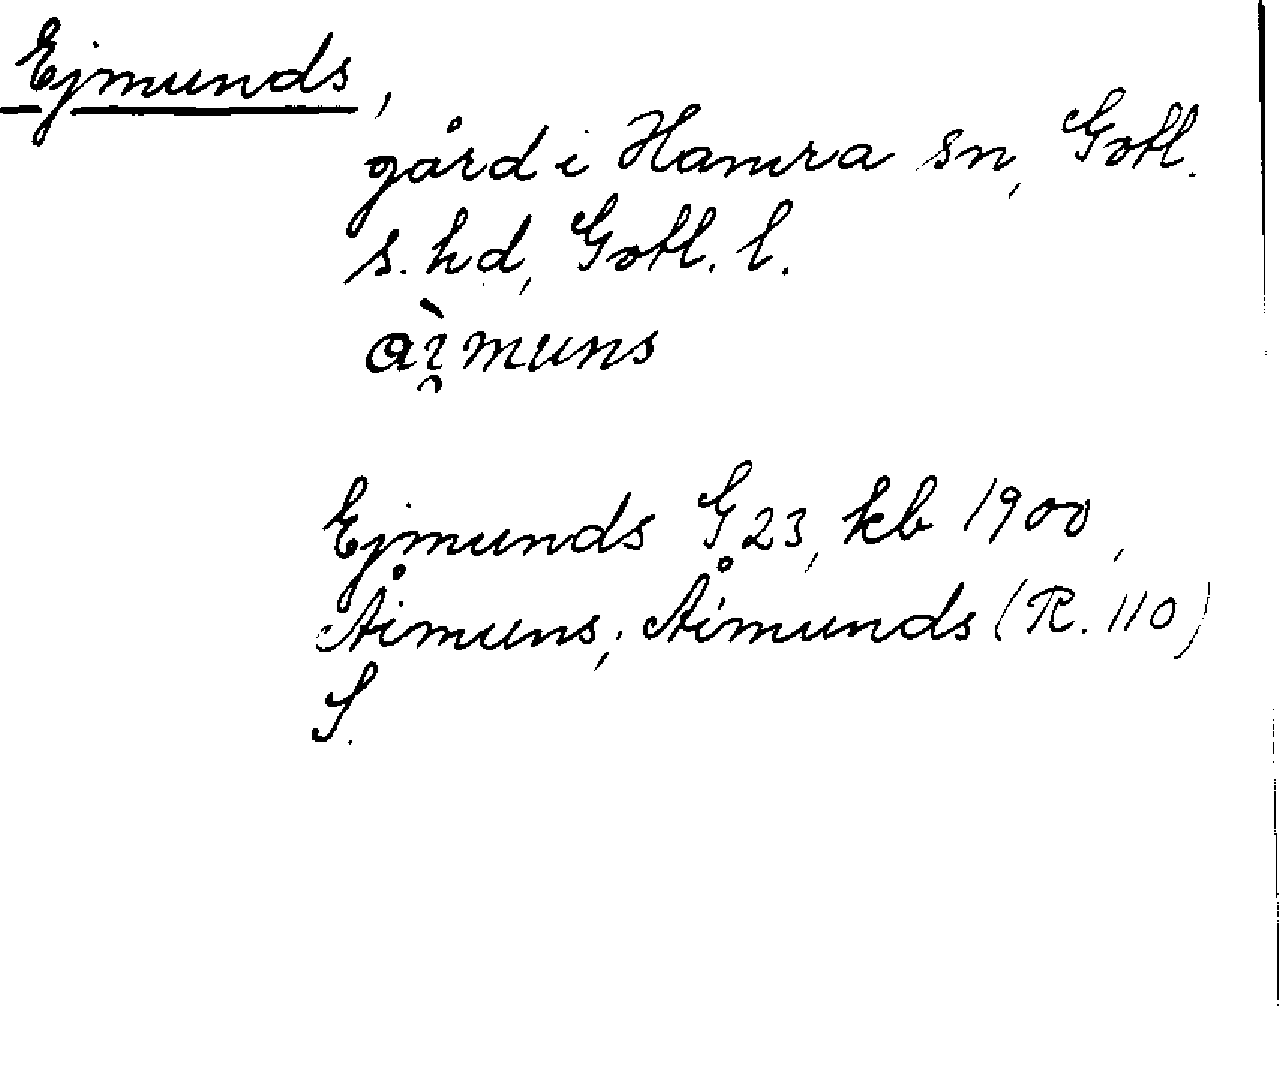 Ejmunds,
gård i Hamra sn, Gotl.
s. hd, Gotl. l.
ɑì̯muns
Ejmunds G 23, kb 1900,
Åimuns, Åimunds (R. 110)
S.